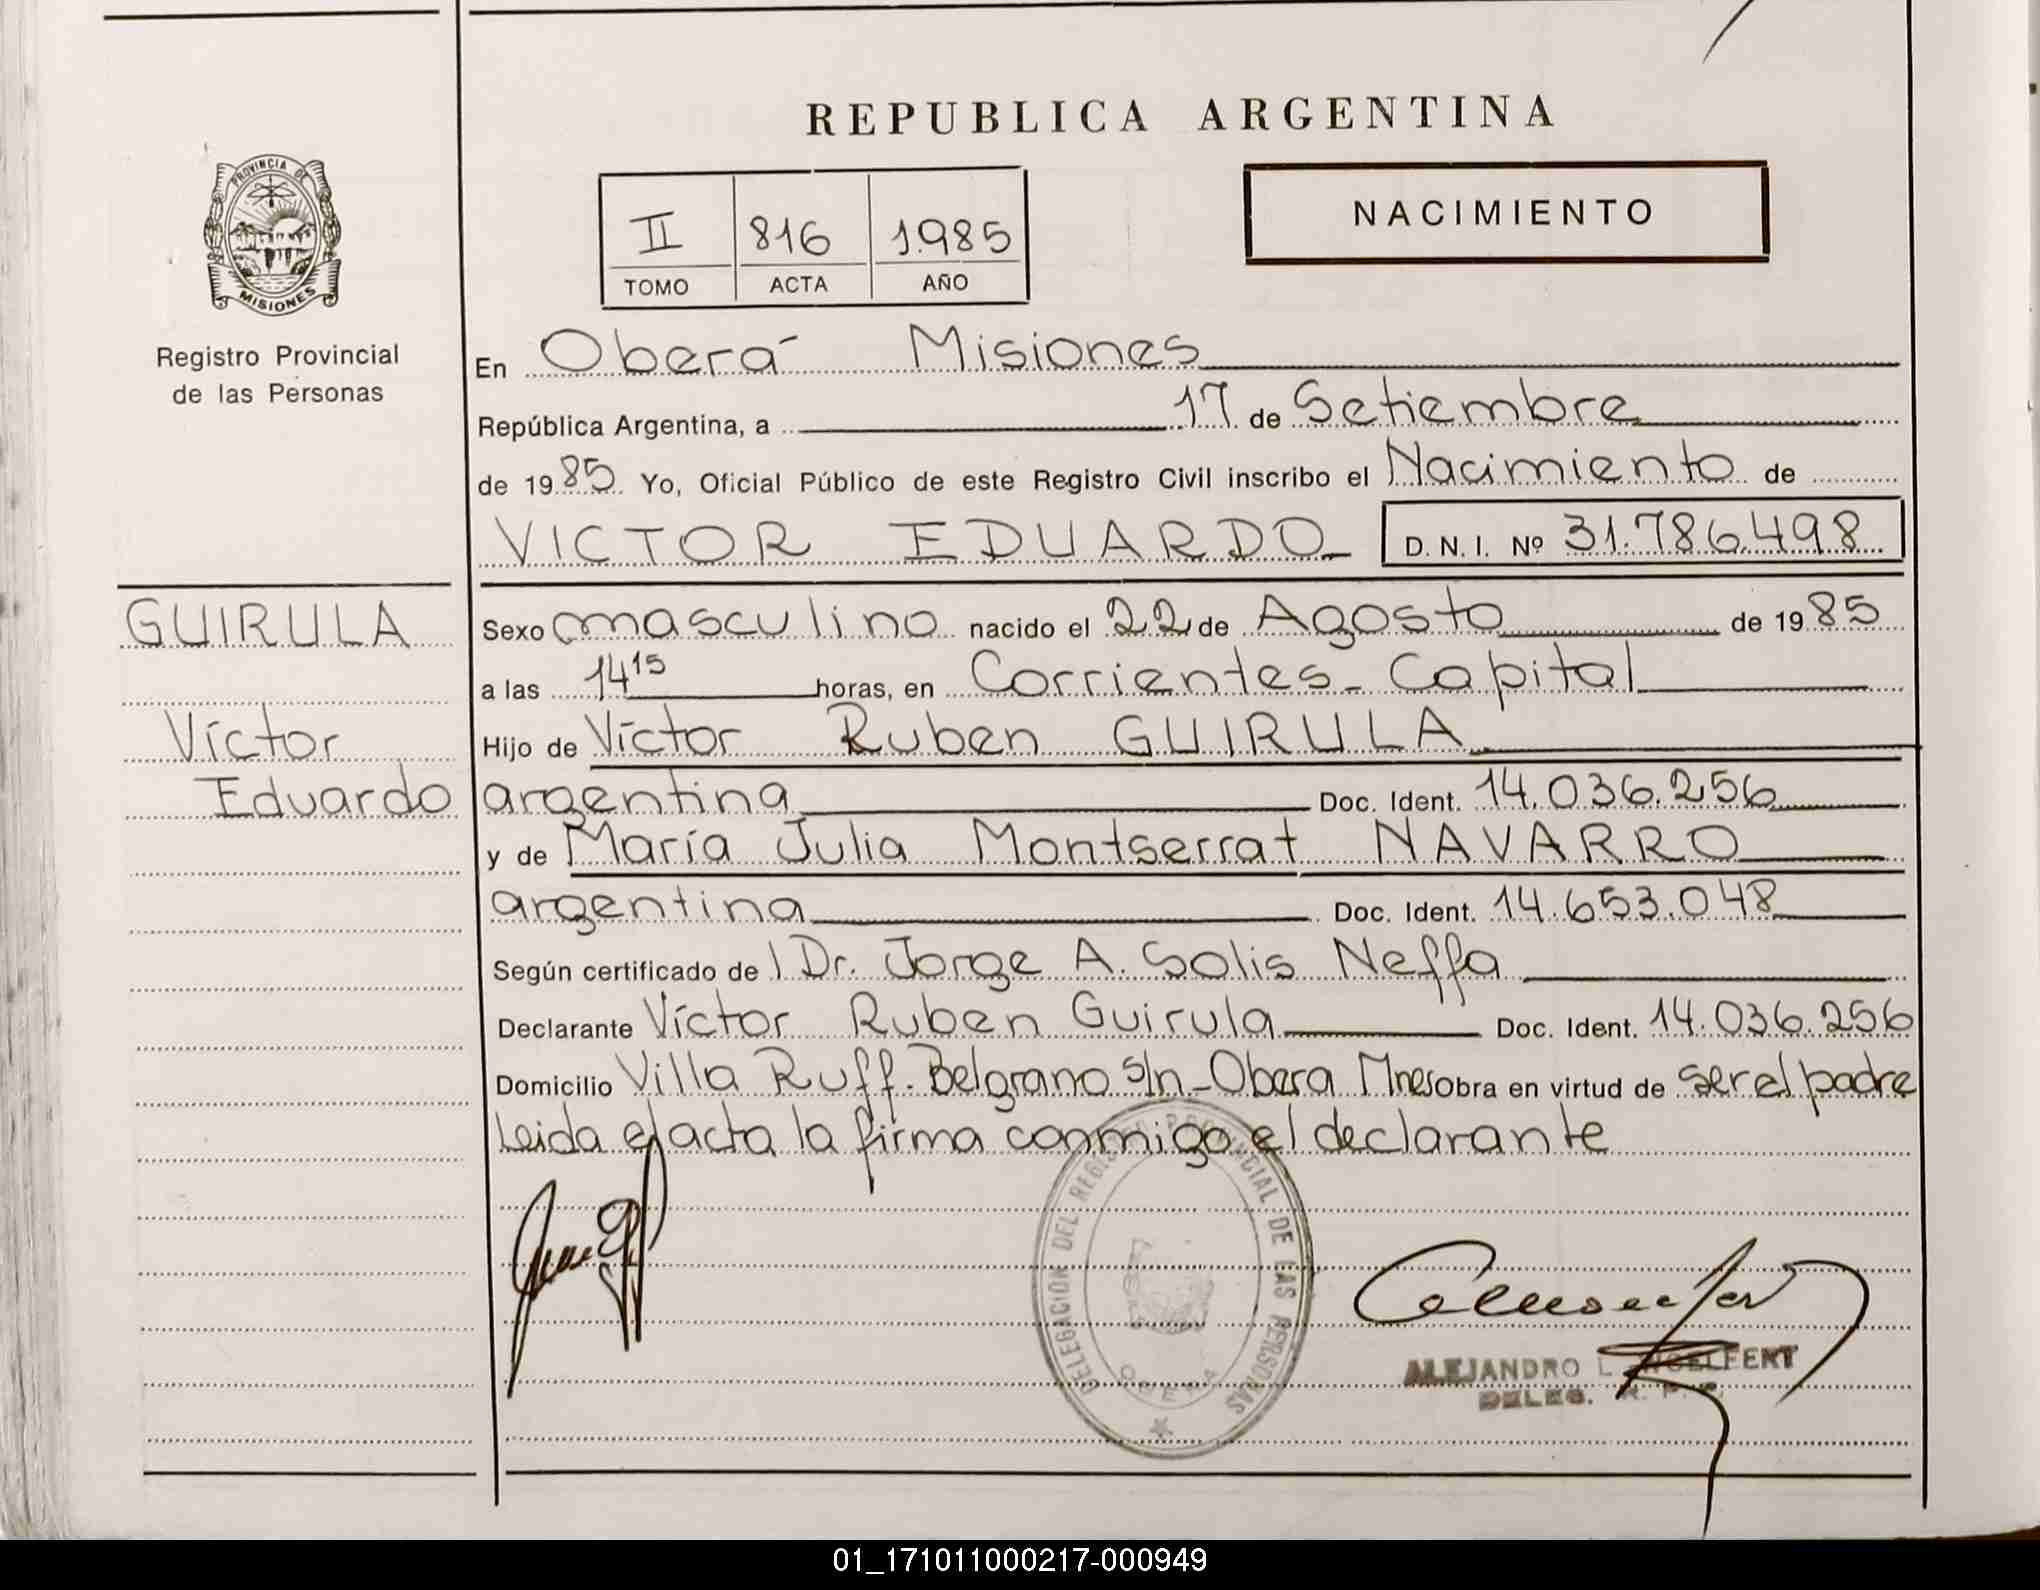 REPUBLICA ARGENTINA
PROVINCIA DE
MISIONES
Registro Provincial
de las Personas
II 816 1.985
TOMO ACTA AÑO
NACIMIENTO
En Oberá Misiones
República Argentina, a 17 de Setiembre
de 1985 Yo, Oficial Público de este Registro Civil inscribo el Nacimiento de
VICTOR EDUARDO D. N. I. Nº 31.786.498
GUIRULA
Víctor
Eduardo
Sexo masculino nacido el 22 de Agosto de 1985
a las 14 15 horas, en Corrientes - Capital
Hijo de Víctor Ruben GUIRULA
argentina Doc. Ident. 14.036.256
y de María Julia Montserrat NAVARRO
argentina Doc. Ident. 14.653.048
Según certificado de l Dr. Jorge A. Solis Neffa
Declarante Víctor Ruben Guirula Doc. Ident. 14.036.256
Domicilio Villa Ruff. Belgrano s/n - Obera Mnes obra en virtud de ser el padre
Leida el acta la firma conmigo el declarante
DELEGACION DEL REGISTRO PROVINCIAL DE LAS PERSONAS
OBERA
ALEJANDRO L.
DELEG. R. P.
01_171011000217-000949